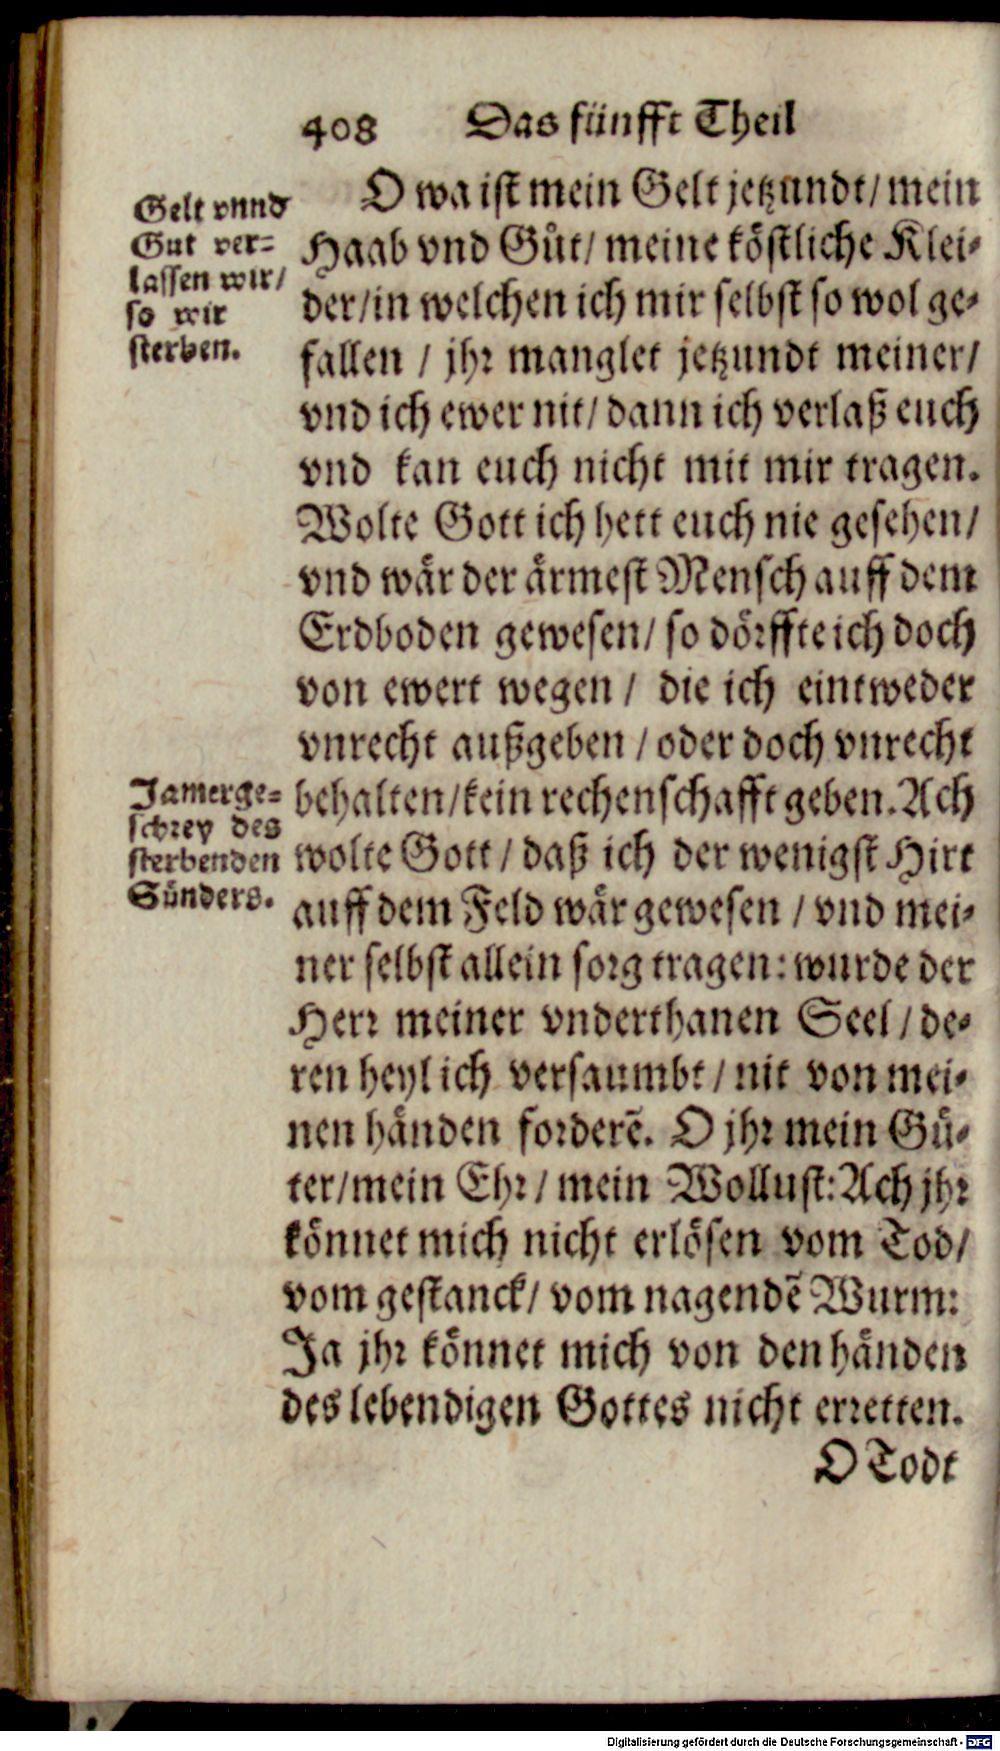 408 Das fünfft Theil
Gelt vnnd
Gut ver-
lassen wir/
so wir
sterben.
O wa ist mein Gelt jetzundt/ mein
Haab vnd Gůt/ meine köstliche Klei-
der/in welchen ich mir selbst so wol ge-
fallen / jhr manglet jetzundt meiner/
vnd ich ewer nit/ dann ich verlaß euch
vnd kan euch nicht mit mir tragen.
Wolte Gott ich hett euch nie gesehen/
vnd wår der årmest Mensch auff dem
Erdboden gewesen/ so dörffte ich doch
von ewert wegen / die ich eintweder
vnrecht außgeben / oder doch vnrecht
behalten/kein rechenschafft geben. Ach
wolte Gott / daß ich der wenigst Hirt
auff dem Feld wår gewesen / vnd mei-
ner selbst allein sorg tragen: wurde der
Herr meiner vnderthanen Seel / de-
ren heyl ich versaumbt / nit von mei-
nen hånden forderē. O jhr mein Gü-
ter/mein Ehr / mein Wollust: Ach jhr
könnet mich nicht erlösen vom Tod/
vom gestanck/ vom nagendē Wurm:
Ja jhr könnet mich von den hånden
des lebendigen Gottes nicht erretten.
Jamerge-
schrey des
sterbenden
Sünders.
O Todt
Digitalisierung gefördert durch die Deutsche Forschungsgemeinschaft - DFG